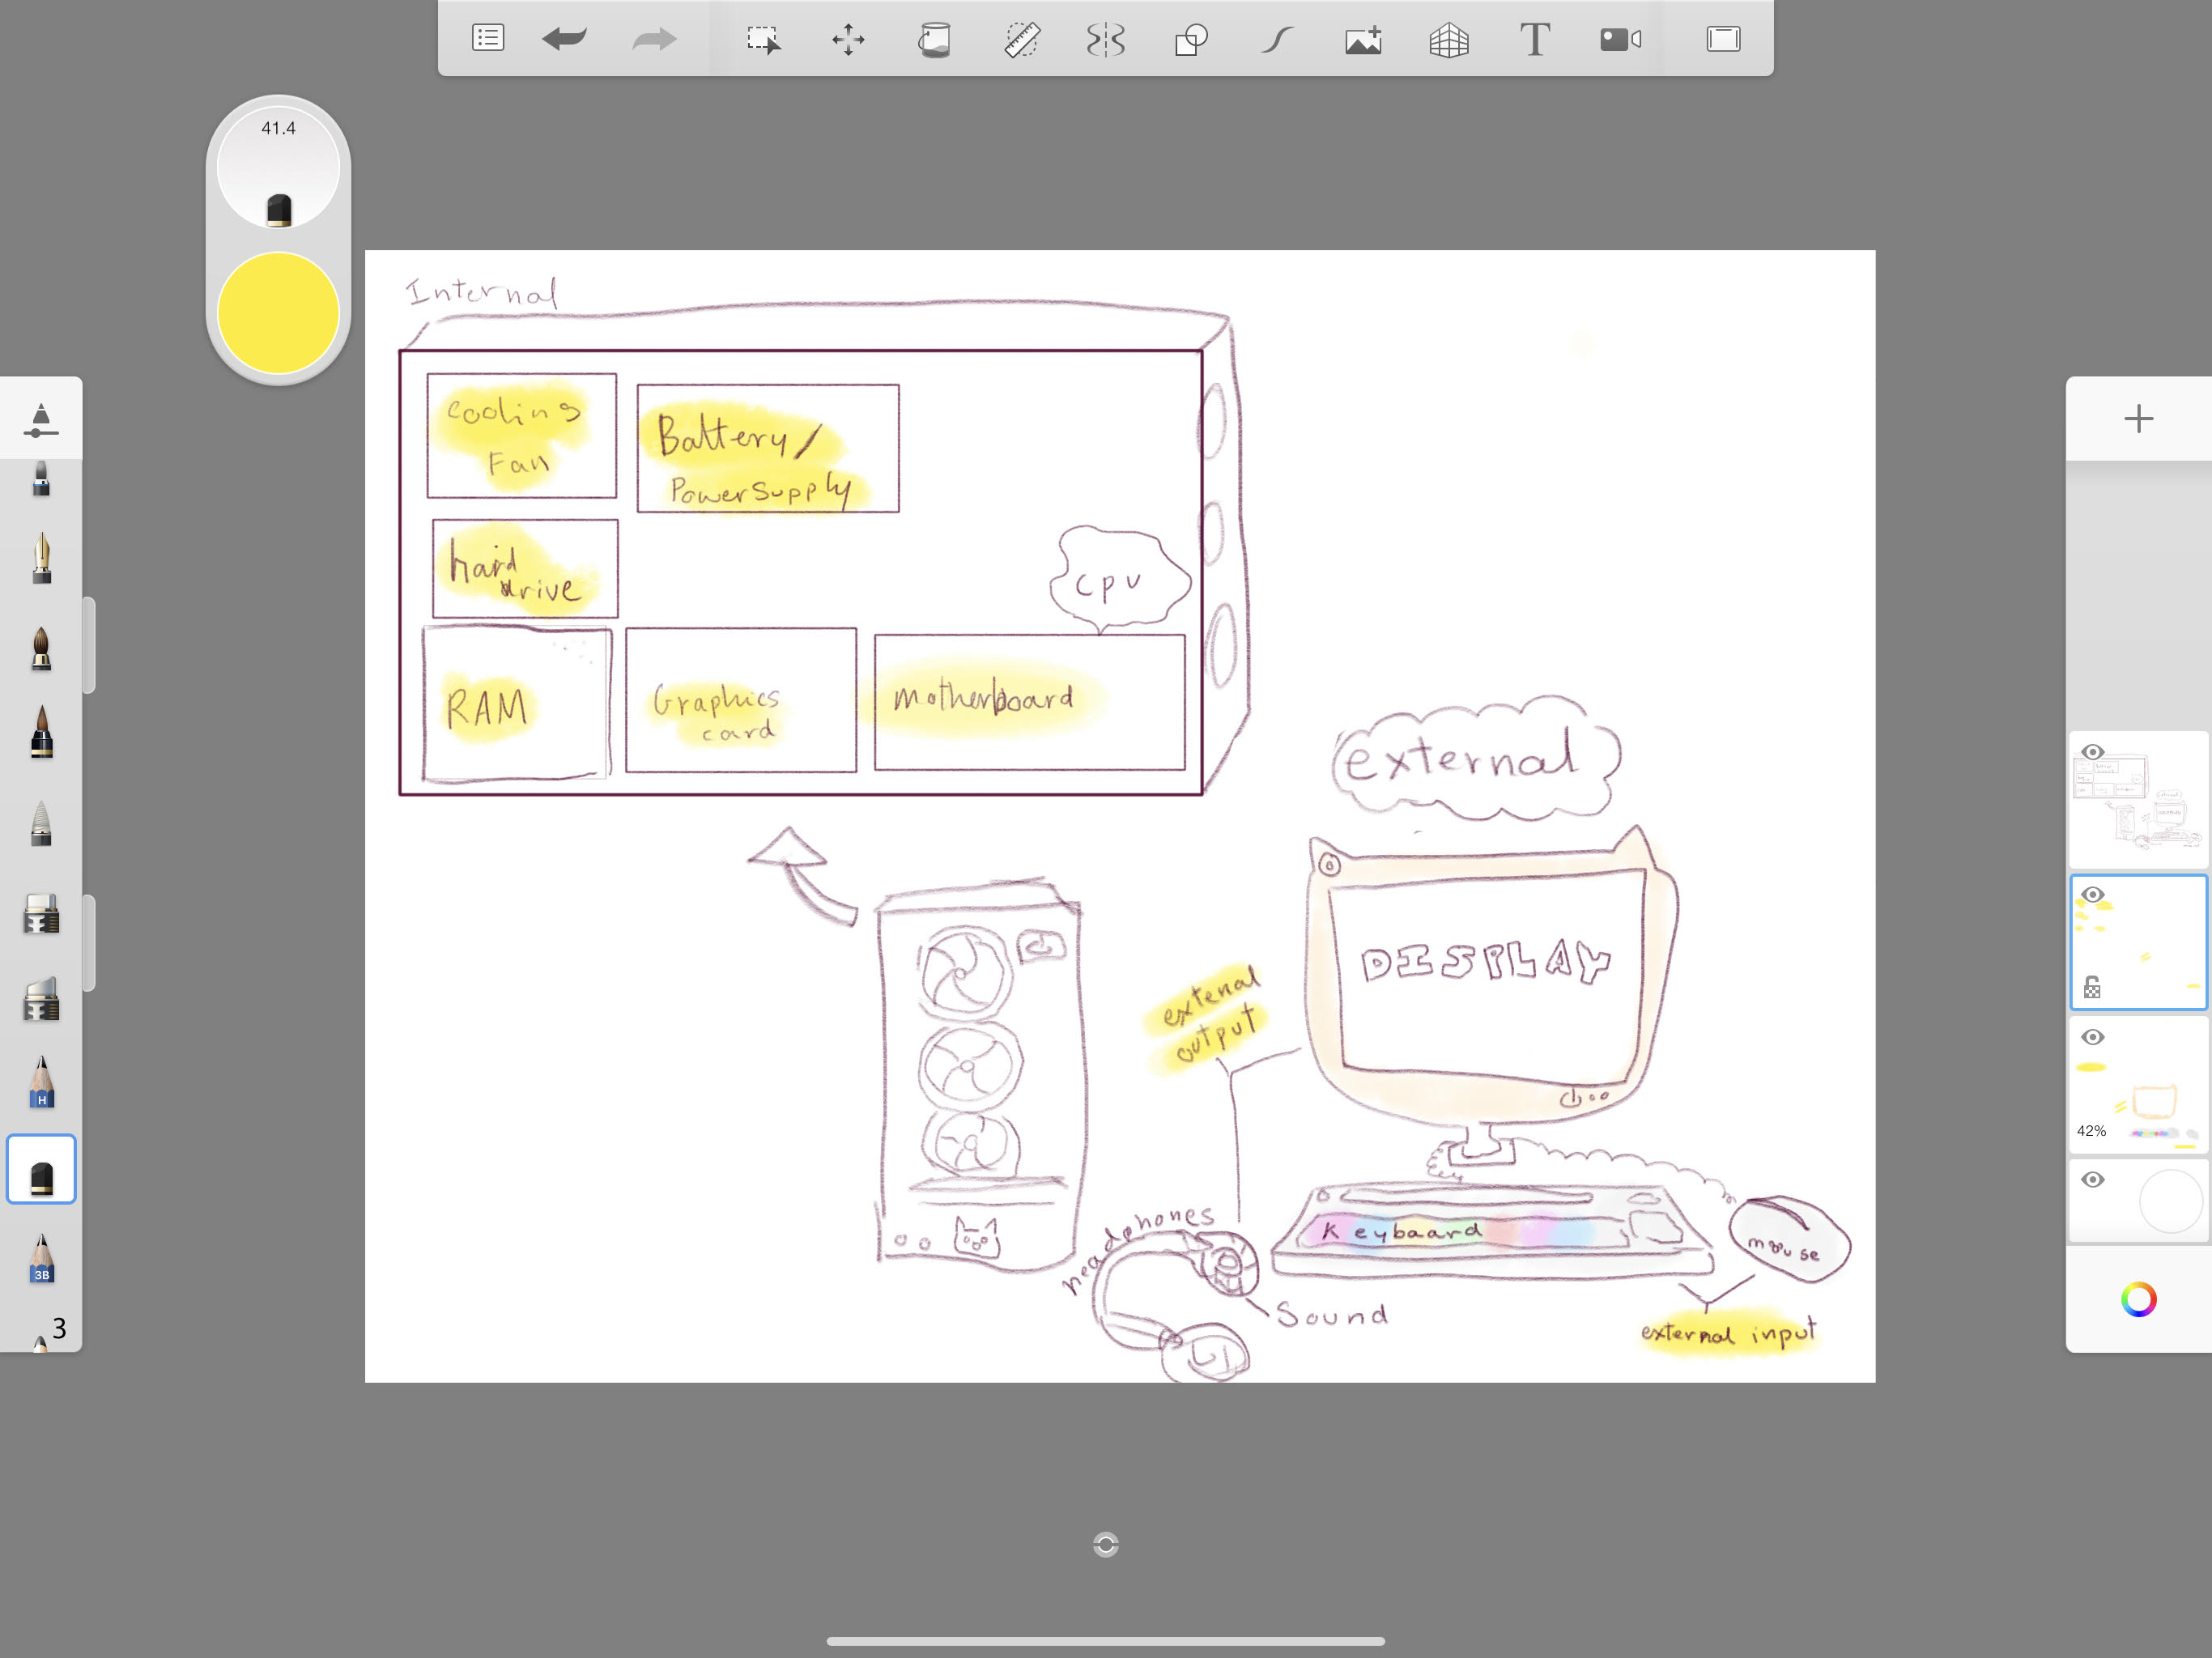 41.4
Internal
Cooling
Fan
Battery/
Power Supply
hard
drive
CPU
RAM
Graphics
card
Motherboard
external
DISPLAY
extenal
output
headphones
Keybaard
mouse
Sound
external input
42%
H
3B
3